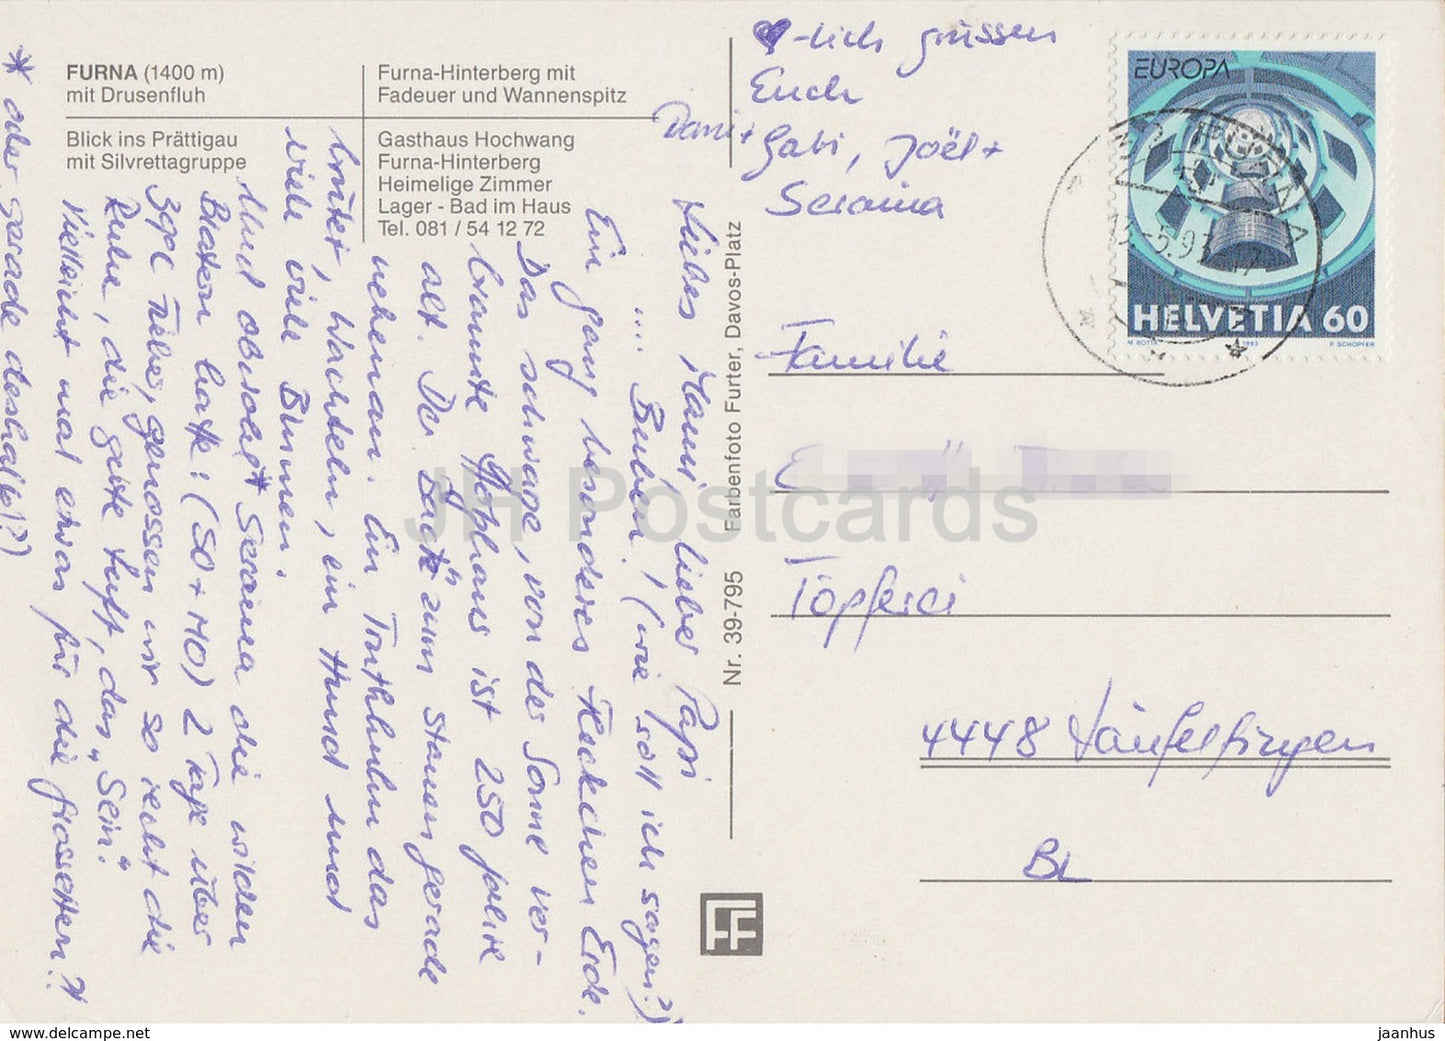 FURNA (1400 m)
mit Drusenfluh
Blick ins Prättigau
mit Silvrettagruppe
Furna-Hinterberg mit
Fadeuer und Wannenspitz
Gasthaus Hochwang
Furna-Hinterberg
Heimelige Zimmer
Lager - Bad im Haus
Tel. 081 / 54 12 72
Liebes Mami, lieber Papi
.... Buben! (wie soll ich sagen?)
Ein ganz besonderes Fleckchen Erde.
Das schwarze, von der Sonne ver-
brannte Holzhaus ist 250 Jahre
alt. Der zum Stanen gerade
nebenan. Ein Truthuhn das
brütet, Wachteln, ein Hund und
viele viele Blumen.
Und obwohl* Seraina die wilden
Blatern hatte: (SO + MO) 2 Tage über
39°C Fieber, genossen wir so recht die
Ruhe, die gute Luft, das "Sein".
Vielleicht mal etwas für die Grosseltern?!
* oder gerade deshalb!?)
♥-lich grüssen
Euch
Dani +
Gabi, Joël +
Seraina
Nr. 39-795 Farbenfoto Furter, Davos-Platz
FF
EUROPA
HELVETIA 60
M. BOTTA 1993 P. SCHOPFER
FURNA
13.-5.93-17
Familie
E
Töpferei
4448 Läufelfingen
BL
JH Postcards
www.delcampe.net
jaanhus